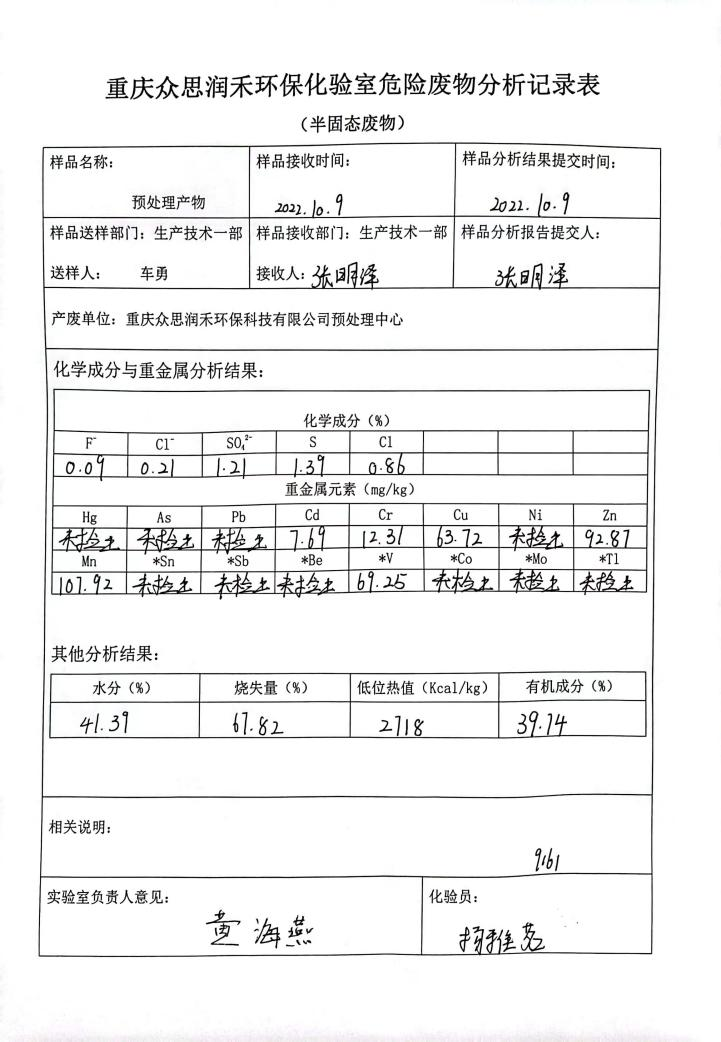 重庆众思润禾环保化验室危险废物分析记录表
（半固态废物）
样品名称： 样品接收时间： 样品分析结果提交时间：
预处理产物 2022.10.9 2022.10.9
样品送样部门：生产技术一部 样品接收部门：生产技术一部 样品分析报告提交人：
送样人： 车勇 接收人：张明泽 张明泽
产废单位：重庆众思润禾环保科技有限公司预处理中心
化学成分与重金属分析结果：
化学成分（%）
F⁻ Cl⁻ SO₄²⁻ S Cl
0.09 0.21 1.21 1.39 0.86
重金属元素（mg/kg）
Hg As Pb Cd Cr Cu Ni Zn
未检出 未检出 未检出 7.69 12.31 63.72 未检出 92.87
Mn *Sn *Sb *Be *V *Co *Mo *Tl
107.92 未检出 未检出 未检出 69.25 未检出 未检出 未检出
其他分析结果：
水分（%） 烧失量（%） 低位热值（Kcal/kg） 有机成分（%）
41.39 67.82 2718 39.74
相关说明：
9161
实验室负责人意见： 化验员：
黄海燕